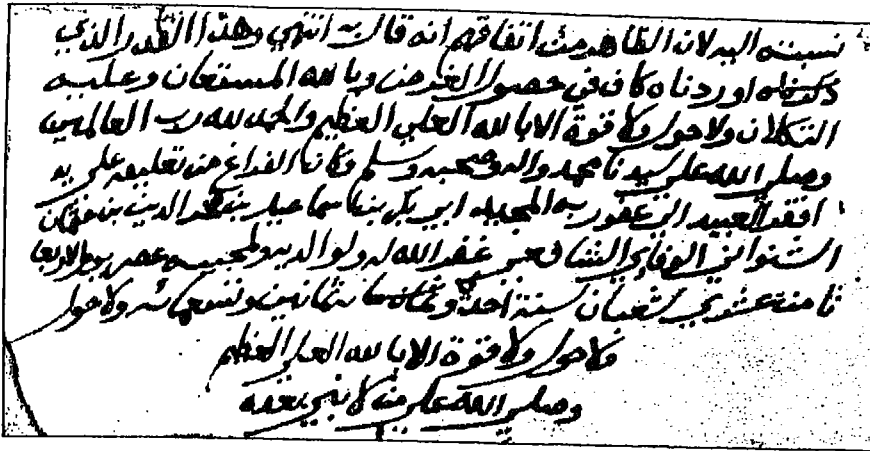 نسبته اليه لان الظاهر من اتفاقهم انه قال به انتهي وهذا القدر الذي
اوردناه كاف في حصول الغرض وبالله المستعان وعليه
التكلان ولا حول ولا قوة الا بالله العلي العظيم والحمد لله رب العالمين
وصلي الله علي سيدنا محمد واله وصحبه وسلم وكان الفراغ من تعليقه علي يد
افقر العبيد الي عفو ربه المجيد ابي بكر بن اسماعيل بن الدين بن عثمان
الشنواني الوفايي الشافعي غفر الله له ولوالديه ولمحبيه عصر يوم الاربعا
ثامن عشري شعبان سنة احدى وثمانين وتسعمائة ولا حول
ولا حول ولا قوة الا بالله العلي العظيم
وصلي الله علي من لا نبي بعده